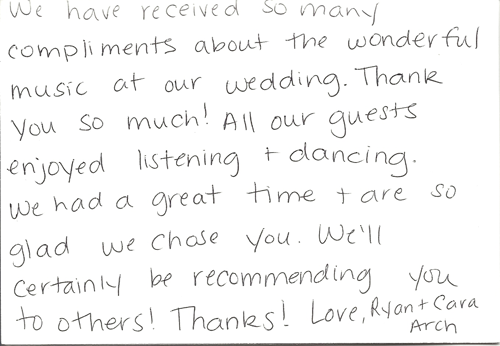 We have received so many
compliments about the wonderful
music at our wedding. Thank
you so much! All our guests
enjoyed listening + dancing.
We had a great time + are so
glad we chose you. We'll
certainly be recommending you
to others! Thanks! Love, Ryan + Cara
Arch